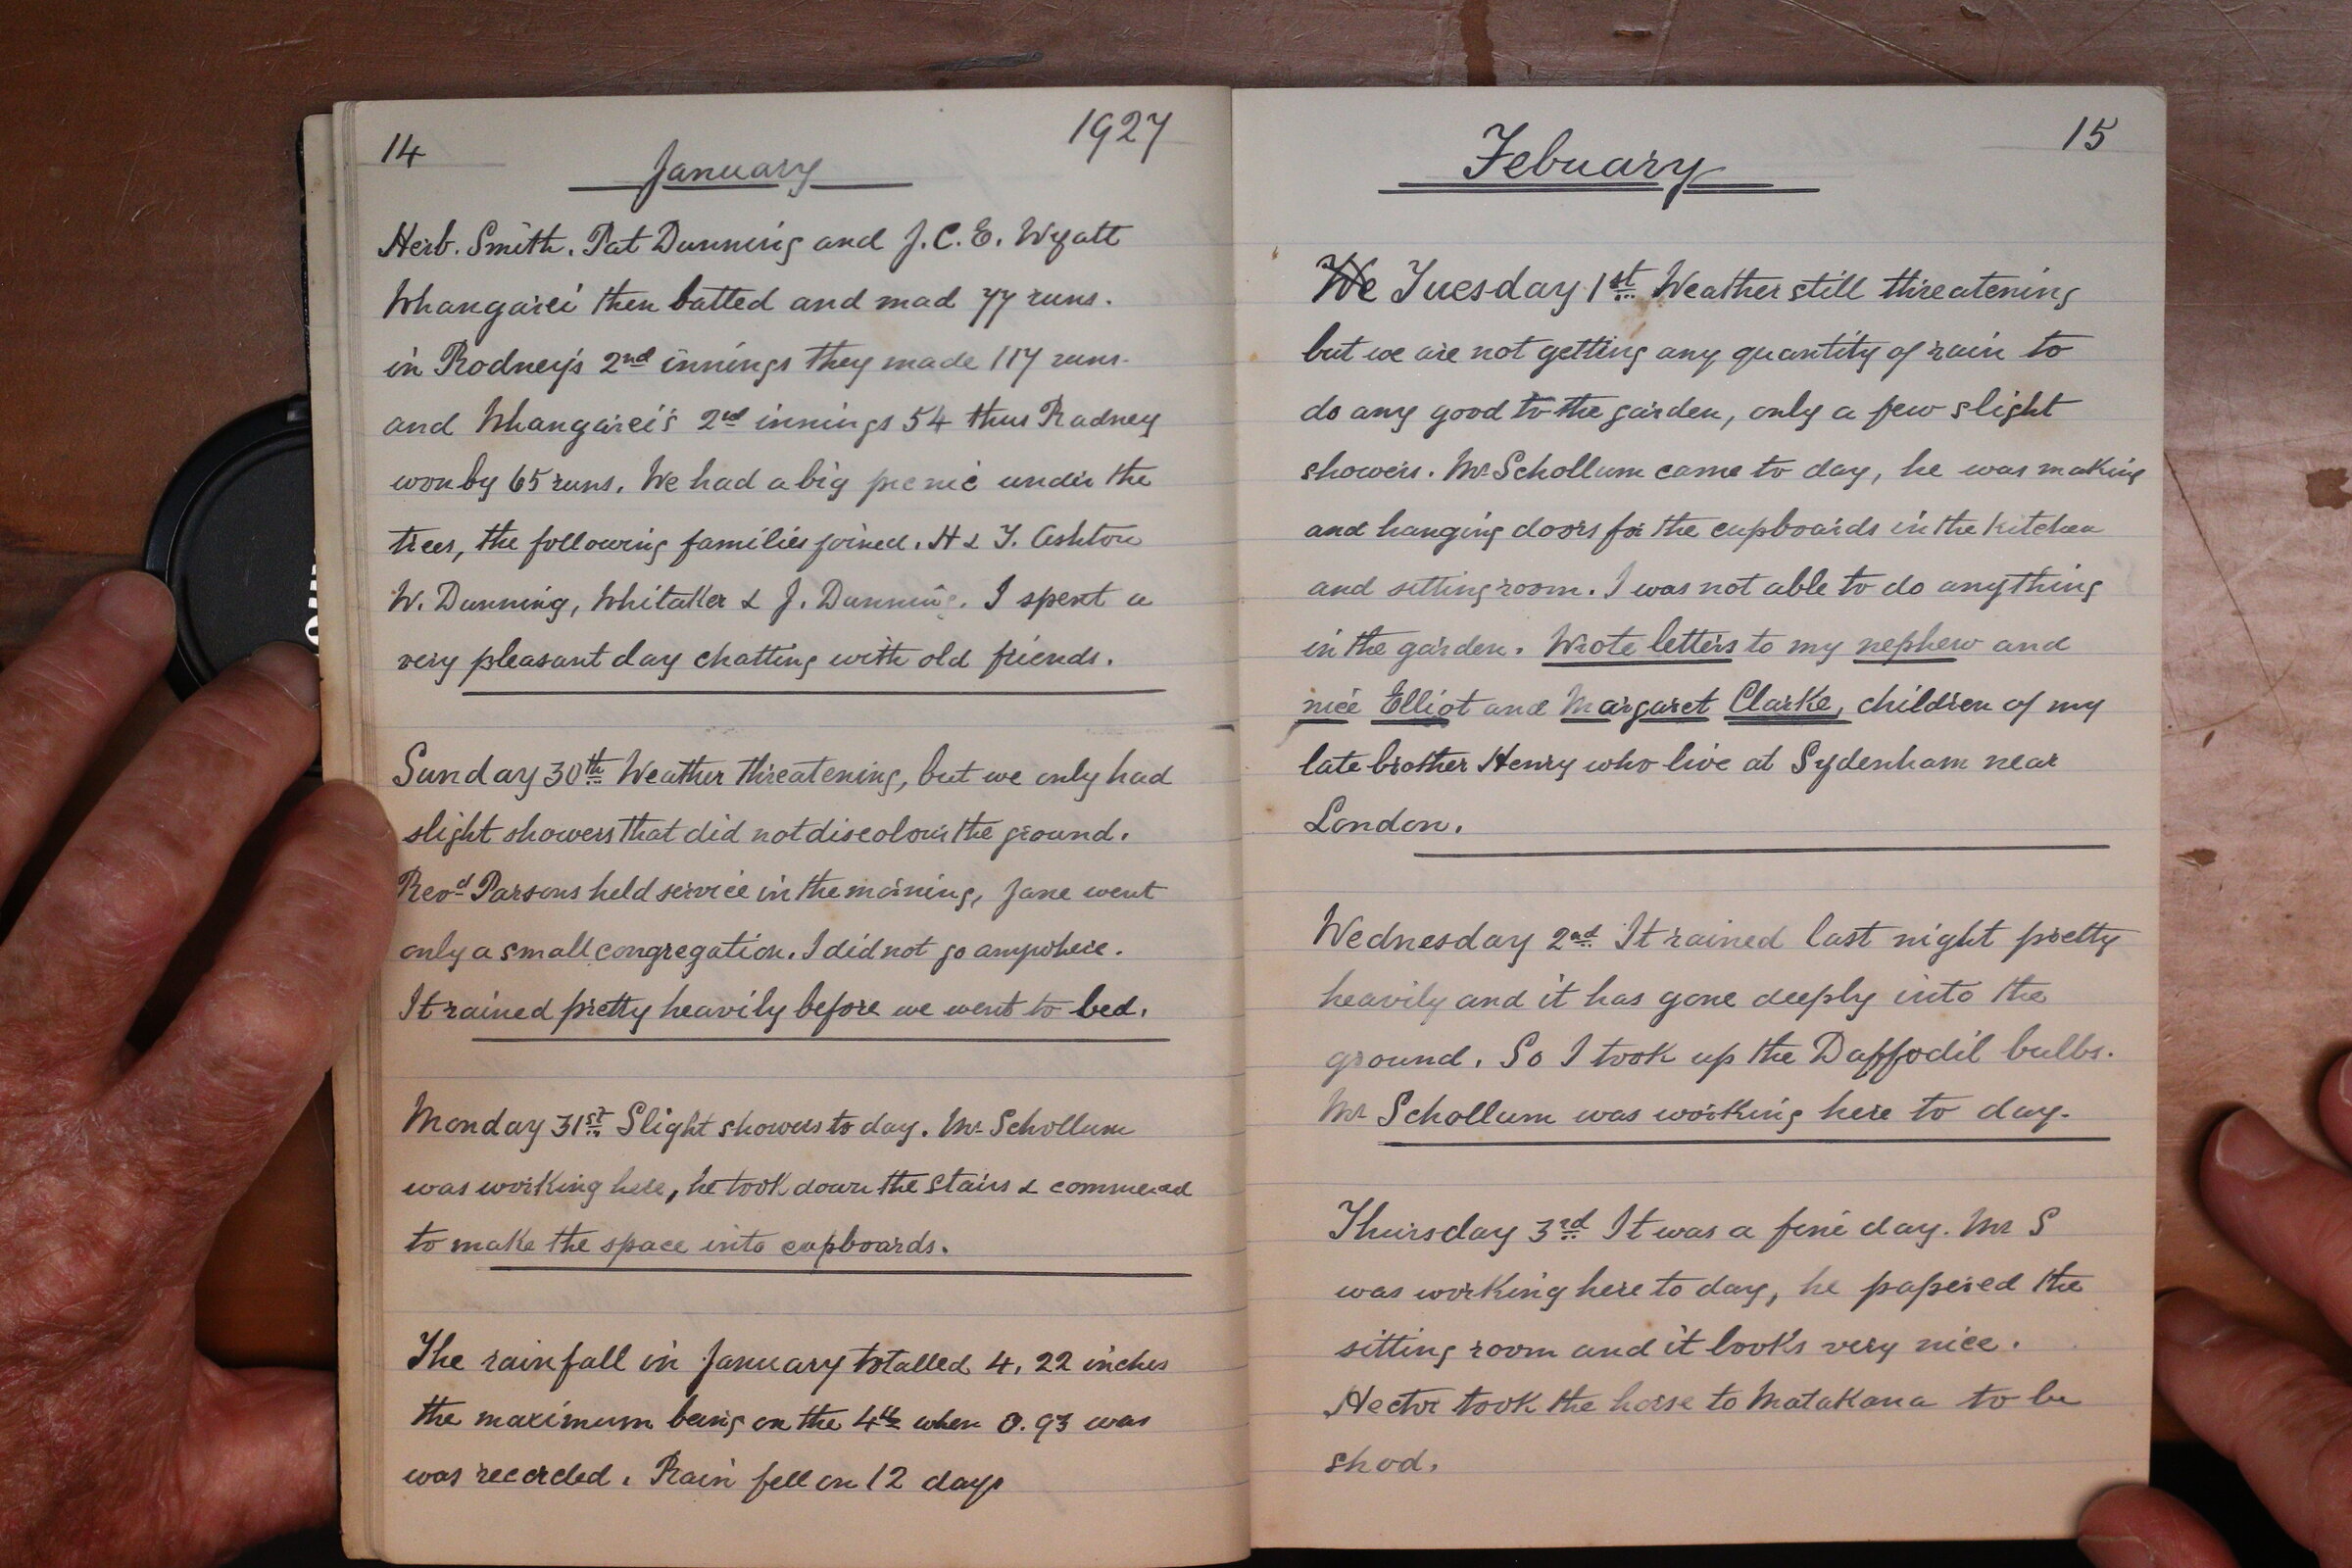 14
1927
January
Herb. Smith. Pat Dunning and J. C. E. Wyatt
Whangarei then batted and mad 77 runs.
in Rodney's 2nd innings they made 117 runs.
and Whangarei's 2nd innings 54 thus Radney
won by 65 runs. We had a big picnic under the
trees, the following families joined. H & Y. Ashton
W. Dunning, Whitaker & J. Dunning. I spent a
very pleasant day chatting with old friends.
Sunday 30th Weather threatening, but we only had
slight showers that did not discolour the ground.
Revd Parsons held service in the morning, Jane went
only a small congregation. I did not go anywhere.
It rained pretty heavily before we went to bed.
Monday 31st Slight showers to day. Mr Schollum
was working here, he took down the stairs &
to make the space into cupboards.
The rainfall in January totalled 4.22 inches
the maximum being on the 4th when 0.93 was
was recorded. Rain fell on 12 days
15
Febuary
We Tuesday 1st Weather still threatening
but we are not getting any quantity of rain to
do any good to the garden, only a few slight
showers. Mr Schollum came to day, he was making
and hanging doors for the cupboards in the kitchen
and sitting room. I was not able to do anything
in the garden. Wrote letters to my nephew and
niece Elliot and Margaret Clarke, children of my
late brother Henry who live at Sydenham near
London.
Wednesday 2nd It rained last night pretty
heavily and it has gone deeply into the
ground. So I took up the Daffodil bulbs.
Mr Schollum was working here to day.
Thursday 3rd It was a fine day. Mr S
was working here to day, he papered the
sitting room and it looks very nice.
Hector took the horse to Matakana to be
shod.